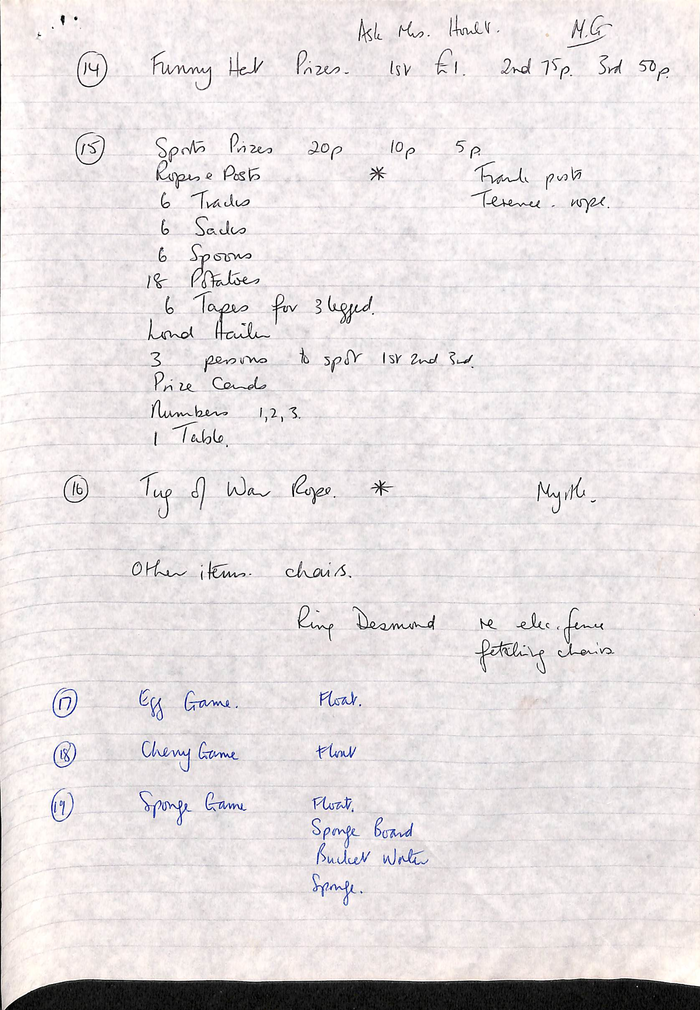 Ask Mrs. Hoult. M.G
14 Funny Hat Prizes. 1st £1. 2nd 75p. 3rd 50p.
15 Sports Prizes 20p 10p 5p
Ropes & Posts * Frank posts
6 Tracks Terence. rope.
6 Sacks
6 Spoons
18 Potatoes
6 Tapes for 3 legged.
Loud Hailer
3 persons to spot 1st 2nd 3rd.
Prize Cards
Numbers 1,2,3.
1 Table.
16 Tug of War Rope. * Myrtle.
Other items. chairs.
Ring Desmond re elec. fence
fetching chairs
17 Egg Game. Float.
18 Cherry Game Float
19 Sponge Game Float.
Sponge Board
Bucket Water
Sponge.